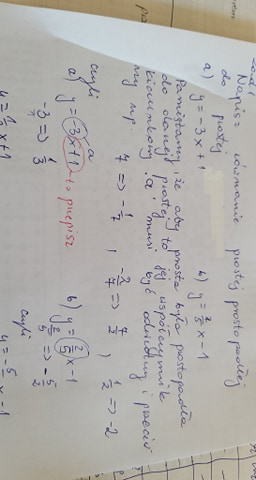 Napisz równanie prostej prostopadłej
do prostej
a) y = -3x + 1     b) y = 2/5 x - 1
Pamiętamy, że aby prosta była prostopadła
do danej prostej to jej współczynnik
kierunkowy "a" musi być odwrotny i przeciw
ny np. 7 => -1/7 , -2/7 => 7/2 , 1/2 => -2
czyli a
a) y = -3x + 1 to przepisz     b) y = 2/5 x - 1
-3 => 1/3     2/5 => -5/2
czyli
y = 1/3 x + 1     y = -5/2 x - 1